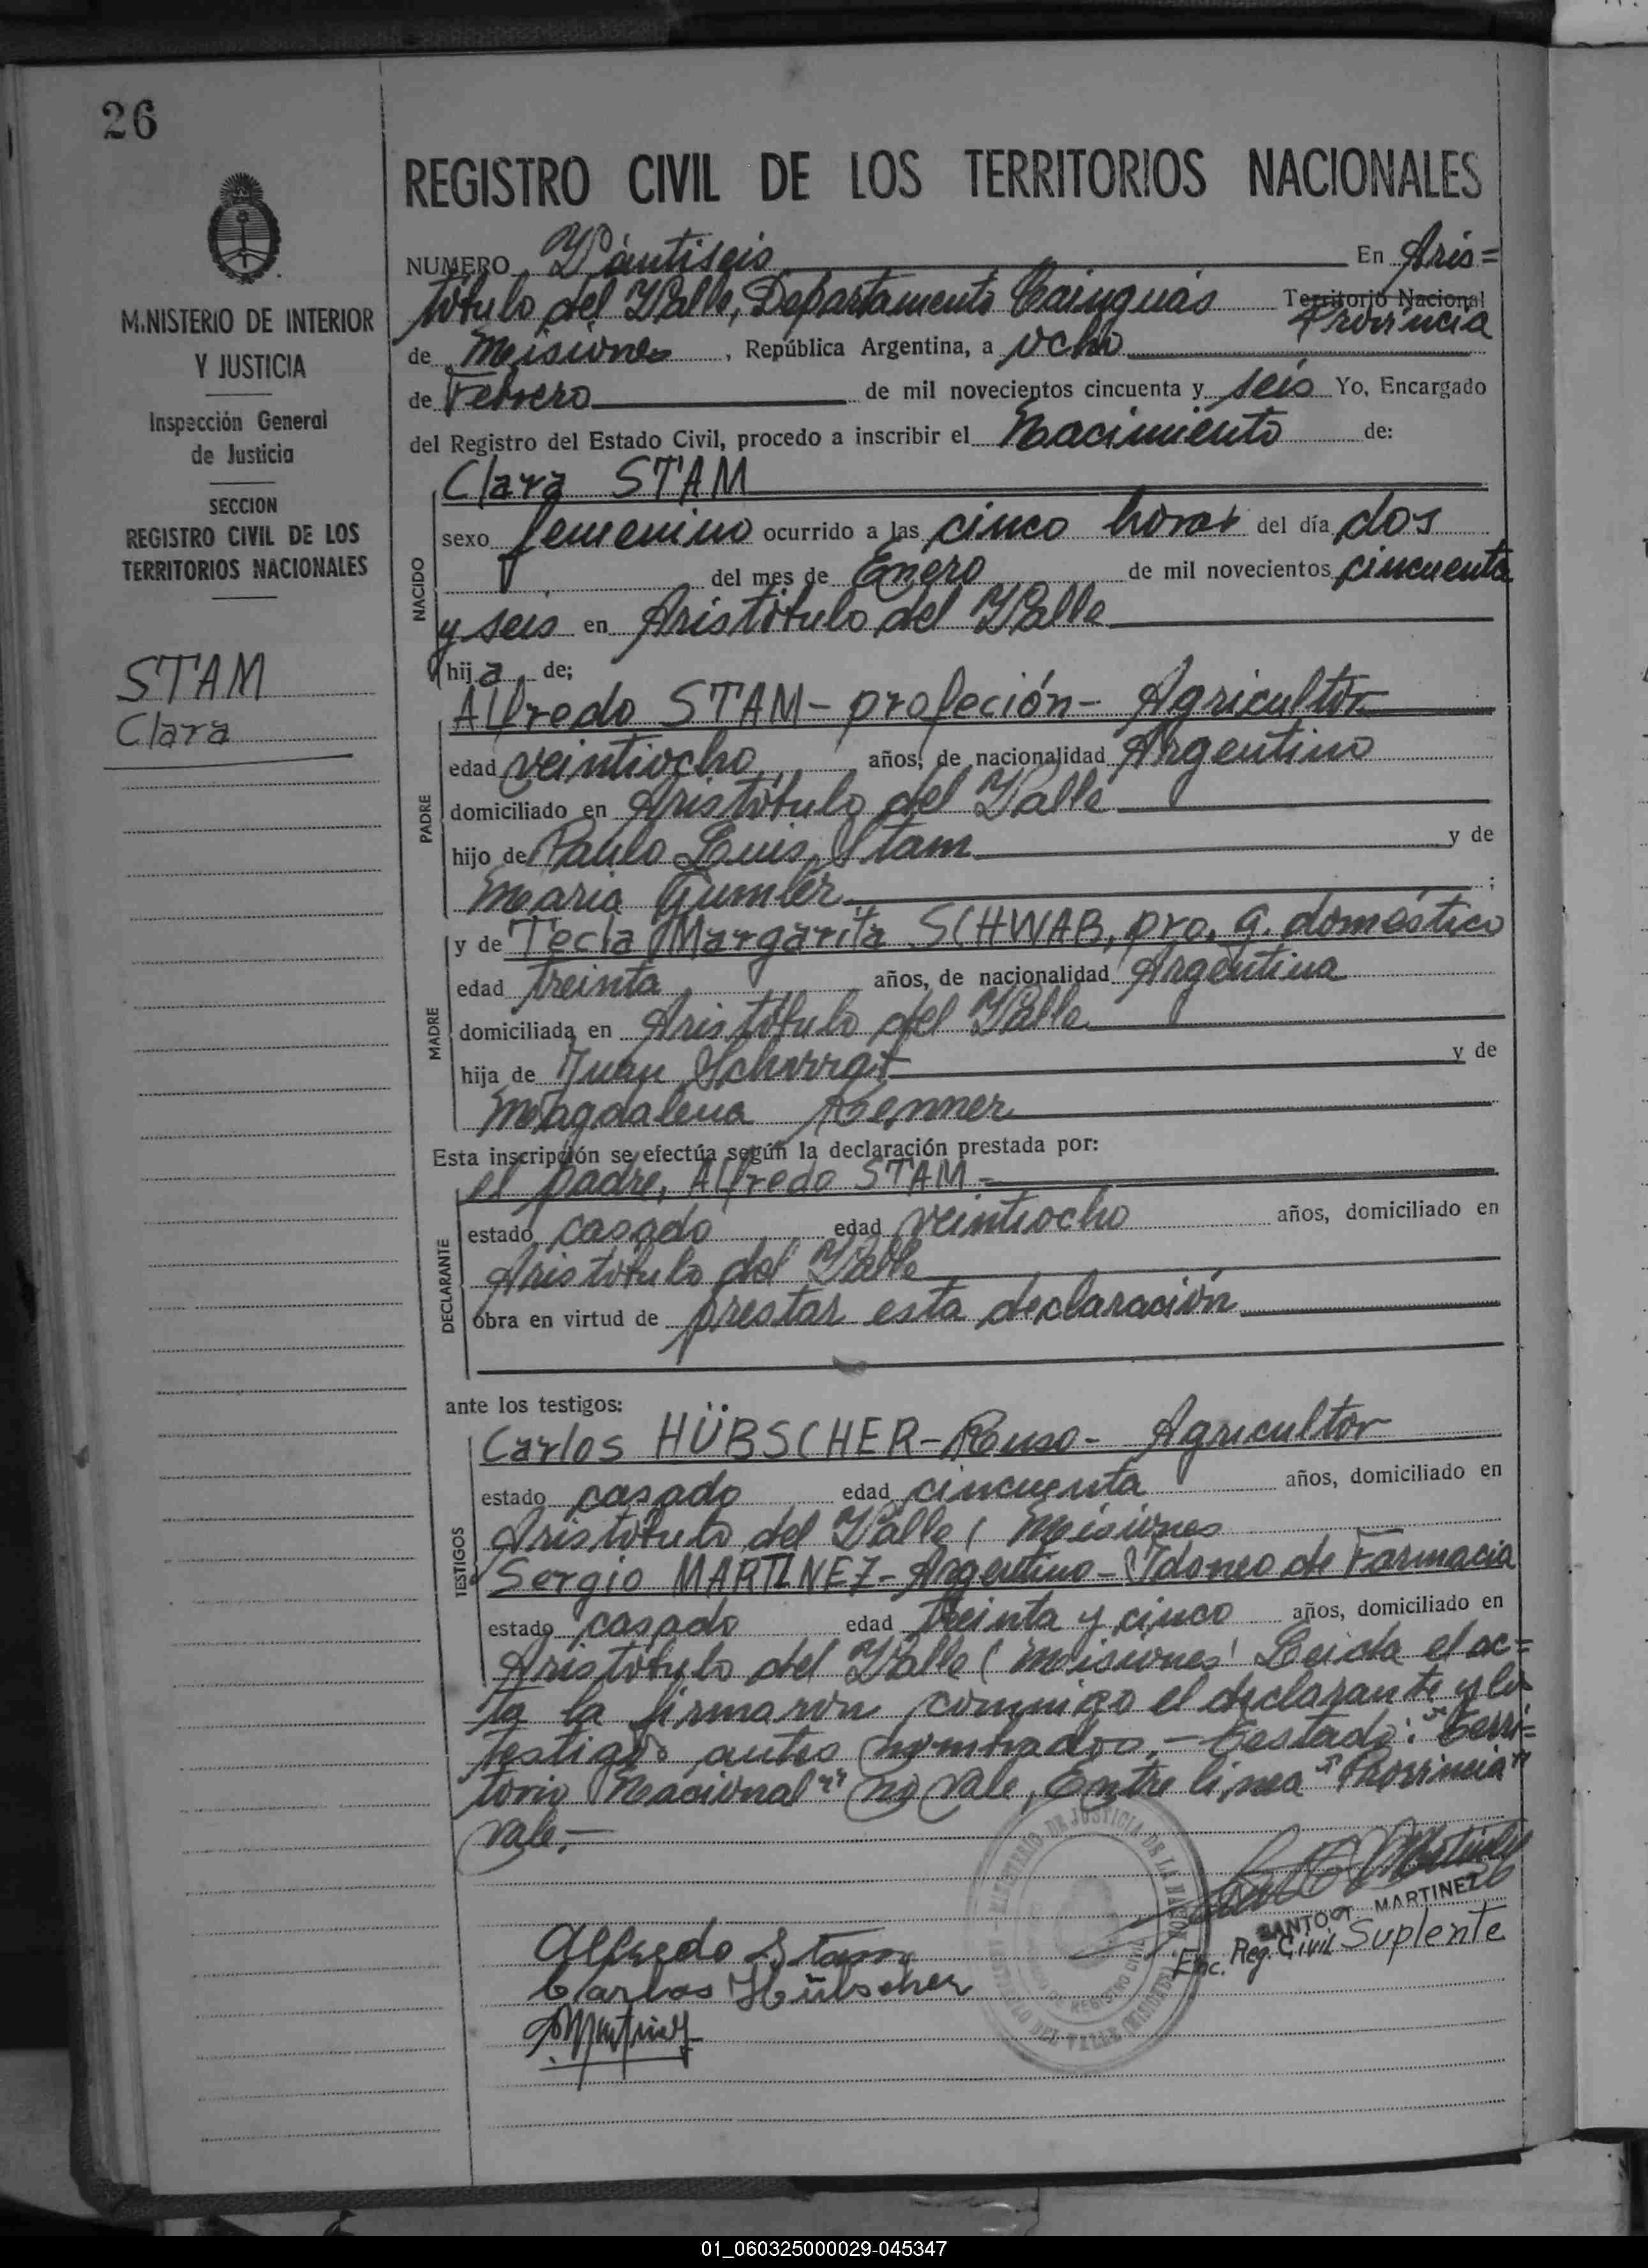 26
MINISTERIO DE INTERIOR
Y JUSTICIA
Inspección General
de Justicia
SECCION
REGISTRO CIVIL DE LOS
TERRITORIOS NACIONALES
STAM
Clara
REGISTRO CIVIL DE LOS TERRITORIOS NACIONALES
NUMERO Véintiseis En Aris=
tóbulo del Valle, Departamento Cainguás Territorio Nacional Provincia
de Misiones, República Argentina, a ocho
de Febrero de mil novecientos cincuenta y seis Yo, Encargado
del Registro del Estado Civil, procedo a inscribir el Nacimiento de:
Clara STAM
NACIDO
sexo femenino ocurrido a las cinco horas del día dos
del mes de Enero de mil novecientos cincuenta
y seis en Aristóbulo del Valle
hija de;
PADRE
Alfredo STAM - profeción - Agricultor
edad veintiocho años, de nacionalidad Argentino
domiciliado en Aristóbulo del Valle
hijo de Paulo Luis Stam y de
Maria Gumler;
MADRE
y de Tecla Margarita SCHWAB, pro. q. doméstico
edad treinta años, de nacionalidad Argentina
domiciliada en Aristóbulo del Valle
hija de Juan y de
Magdalena Renner
Esta inscripción se efectúa según la declaración prestada por:
DECLARANTE
el padre, Alfredo STAM =
estado casado edad veintiocho años, domiciliado en
Aristóbulo del Valle
obra en virtud de prestar esta declaración
ante los testigos:
TESTIGOS
Carlos HÜBSCHER - Ruso - Agricultor
estado casado edad cincuenta años, domiciliado en
Aristóbulo del Valle (Misiones
Sergio MARTINEZ - Argentino - Idoneo de Farmacia
estado casado edad treinta y cinco años, domiciliado en
Aristóbulo del Valle (Misiones) Leida el ac=
ta la firmaron conmigo el declarante y los
testigos antes nombrados. - Testado: "Terri=
torio Nacional" no vale, Entre linea "Provincia"
vale. -
SANTO MARTINEZ
Enc. Reg. Civil Suplente
Alfredo Stam
Carlos Hübscher
MINISTERIO DE JUSTICIA DE LA NACION
01_060325000029-045347